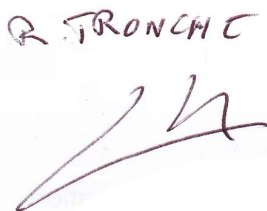 R TRONCHE